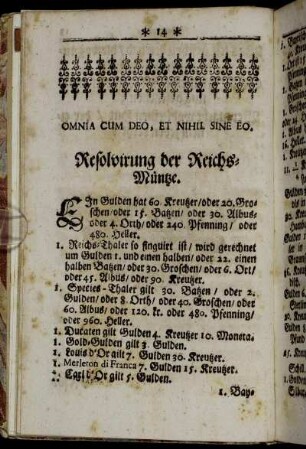 * 14 *
OMNIA CUM DEO, ET NIHIL SINE EO.
Resolvirung der Reichs-
Müntze.
EIn Gulden hat 60. Kreutzer/oder 20. Gro-
schen/oder 15. Batzen/ oder 30. Albus/
oder 4. Orth/oder 240 Pfenning/ oder
480. Heller.
1. Reichs-Thaler so fingirt ist/ wird gerechnet
um Gulden 1. und einen halben/ oder 22. einen
halben Batzen/ oder 30. Groschen/ oder 6. Ort/
oder 45. Albus/ oder 90. Kreutzer.
1. Species-Thaler gilt 30. Batzen/ oder 2.
Gulden/ oder 8. Orth/ oder 40. Groschen/ oder
60. Albus/ oder 120. kr. oder 480. Pfenning/
oder 960. Heller.
1. Ducaten gilt Gulden 4. Kreutzer 10. Moneta.
1. Gold-Gulden gilt 3. Gulden.
1. Louis d'Or gilt 7. Gulden 30. Kreutzer.
1. Merleton di Franca 7. Gulden 15. Kreutzer.
1. Carl d'Or gilt 5. Gulden.
1. Bay-